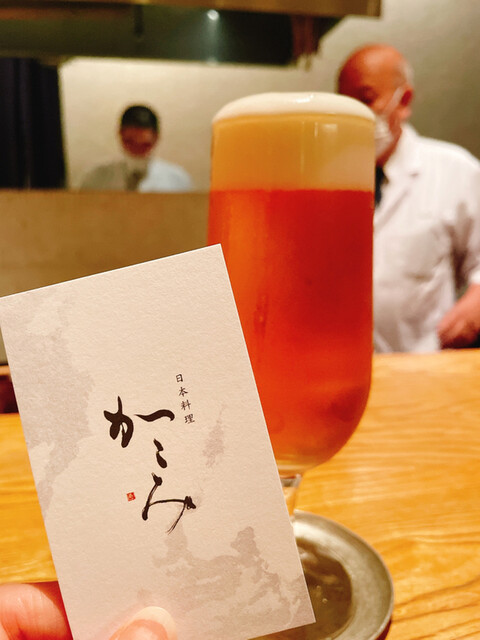 日本料理
かこみ